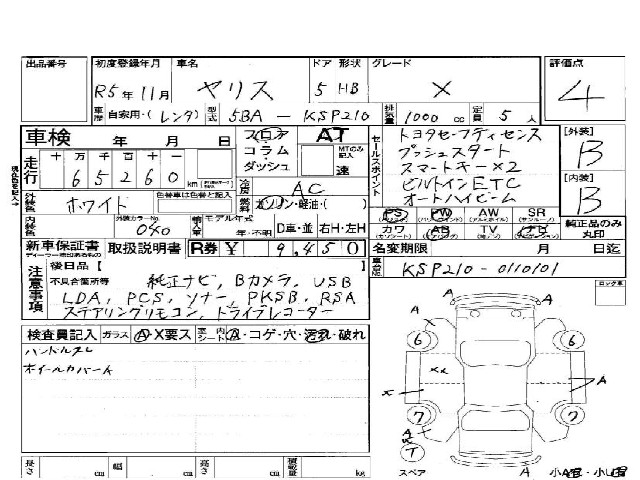 出品番号 初度登録年月 車名 ドア 形状 グレード 評価点
R5年11月 ヤリス 5 HB X 4
車歴 自家用・(レンタ) 型式 5BA-KSP210 排気量 1000 cc 定員 5 人
車検 年 月 日 フロア AT
コラム MTのみ記入
ダッシュ 速
走行 十 万 千 百 十 一
6 5 2 6 0 km
セールスポイント
トヨタセーフティセンス
プッシュスタート
スマートキー×2
ビルトインETC
オートハイビーム
[外装] B
[内装] B
純正品のみ丸印
外装色 ホワイト 色替車は色替と記入 冷房 AC
燃料 ガソリン・経油・( )
PS PW AW SR
(パワステ) (パワーウィンドウ) (アルミホイル) (サンルーフ)
カワ AB TV ナビ
内装色 外装カラーNo. 040 輸入車 モデル年式 年・不明 D車・並 右H・左H
新車保証書 取扱説明書 R券 ¥ 9,450
名変期限 月 日迄
車台No. KSP210-0110101
注意事項
後日品【 】
不具合箇所等 純正ナビ, Bカメラ, USB
LDA, PCS, ソナー, PKSB, RSA
ステアリングリモコン, ドライブレコーダー
ロック車
検査員記入 ガラス A・X要ス 室内シート A・コゲ・穴・汚れ・破れ
ハンドルスレ
ホイールカバーキズ
A A
6 6
XX
X A A
7 7
A
T
スペア A A 小A・小U
長さ cm 幅 cm 高さ cm 積載量 kg